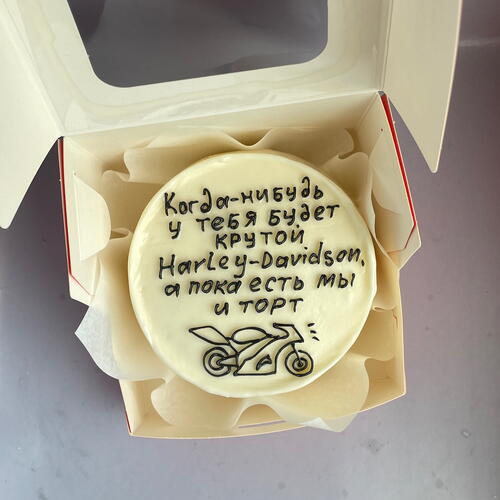 Когда-нибудь
у тебя будет
крутой
Harley-Davidson,
а пока есть мы
и торт